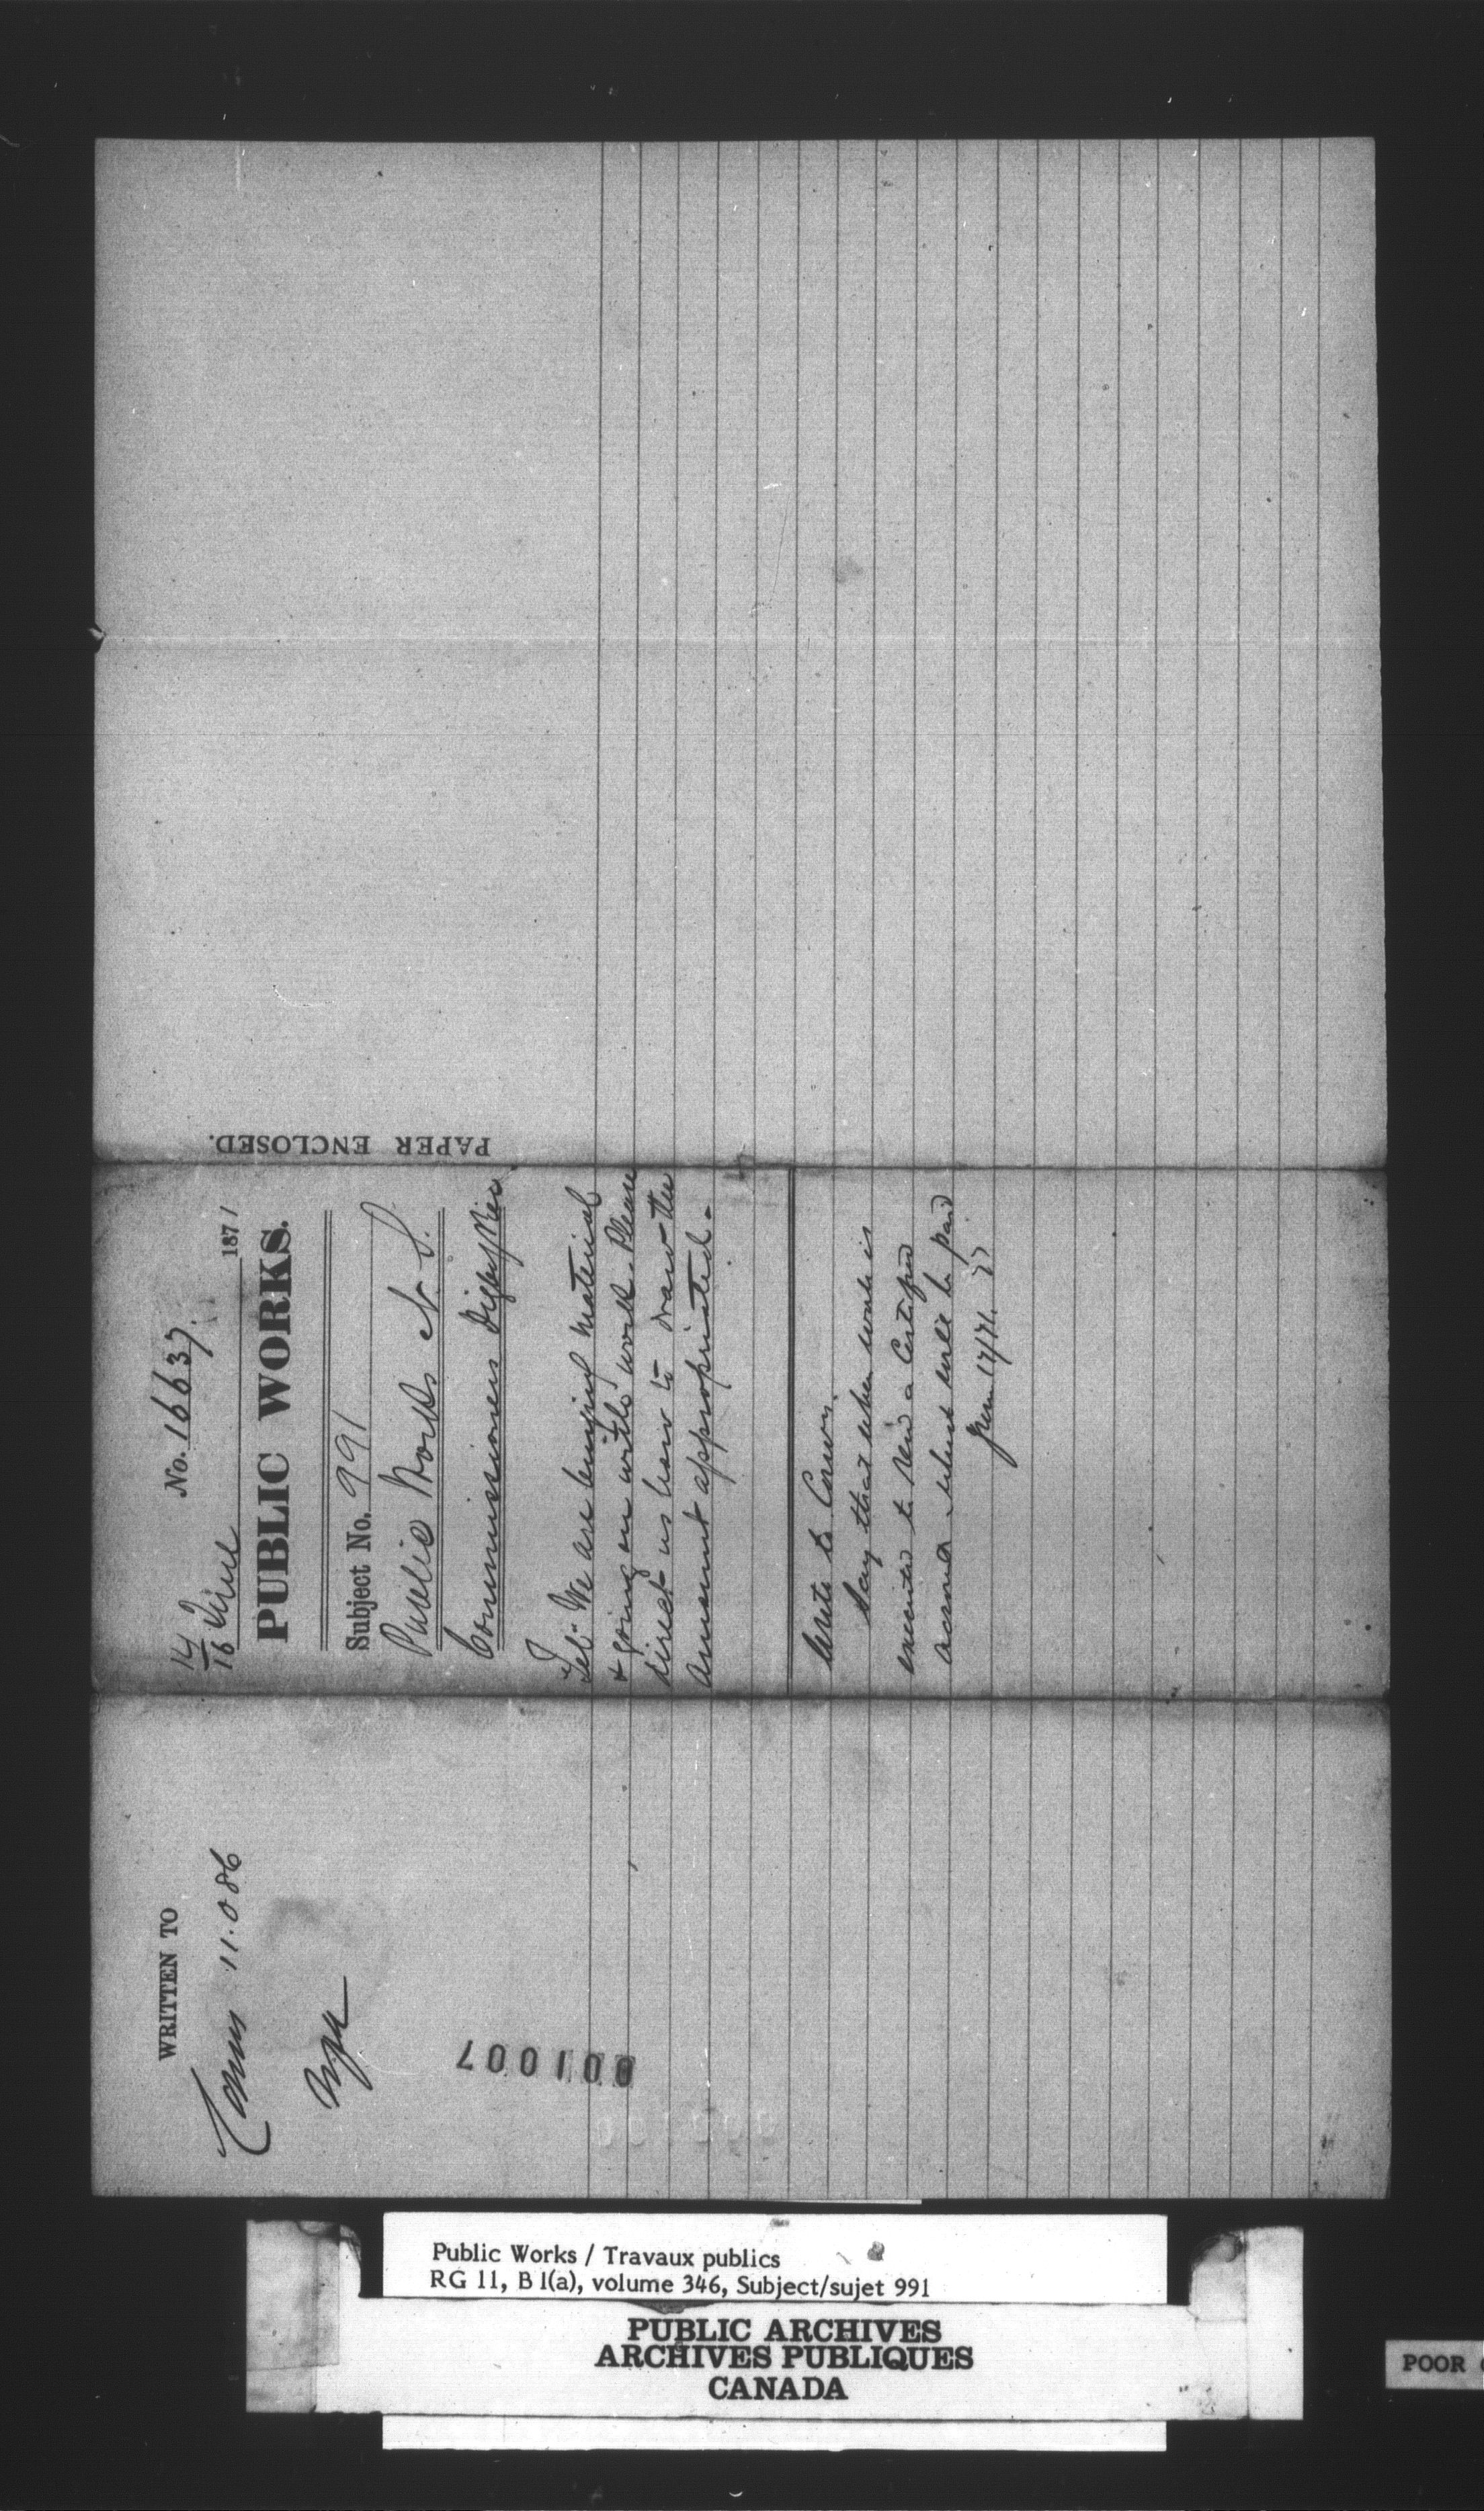 No. 16637.
14
16 June 1871
PUBLIC WORKS.
Subject No. 991
Public Works N. S.
Commissioners Digby Pier
Tel. We are buying material
& going on with work. Please
direct us how to draw the
amount appropriated.
Write to Comrs.
Say that when work is
executed to send a Certified
account which will be paid
June 17/71.
PAPER ENCLOSED.
WRITTEN TO
Comrs 11.086
001007
Public Works / Travaux publics
RG 11, B 1(a), volume 346, Subject/sujet 991
PUBLIC ARCHIVES
ARCHIVES PUBLIQUES
CANADA
POOR